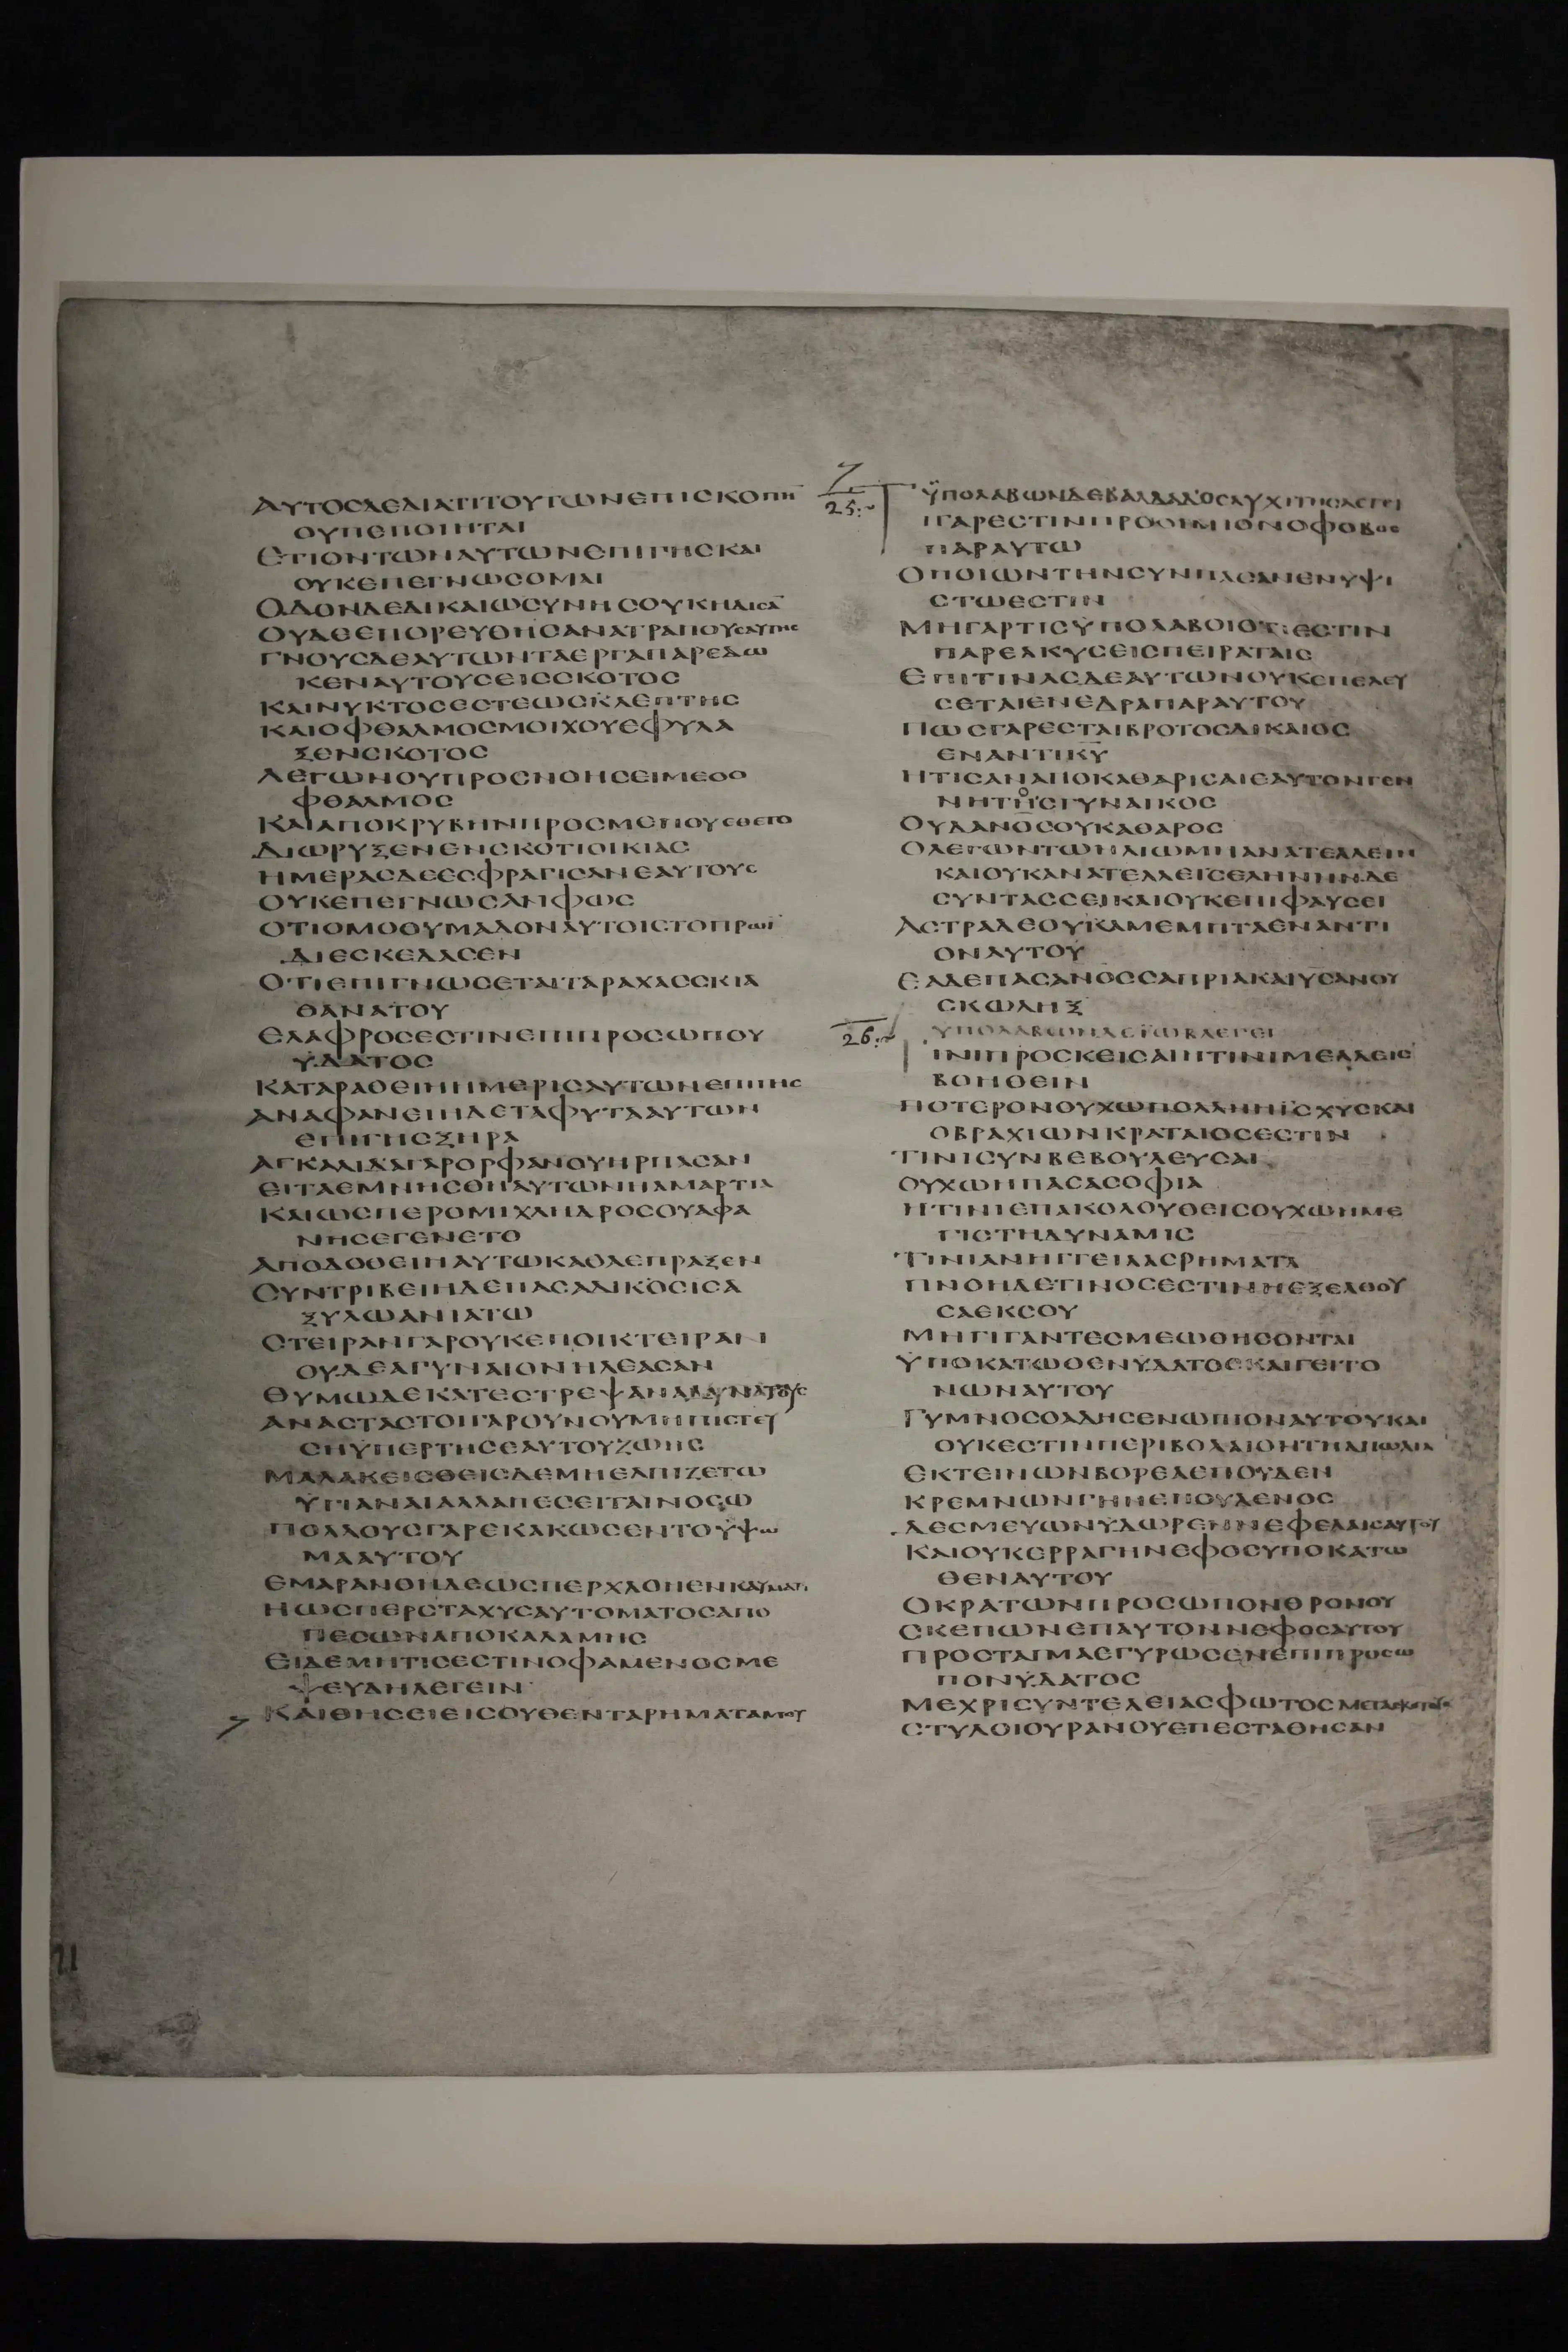 ΑΥΤΟΣΔΕΔΙΑΤΙΤΟΥΤΩΝΕΠΙΣΚΟΠΗ̅
ΟΥΠΕΠΟΙΗΤΑΙ
ΕΠΙΟΝΤΩΝΑΥΤΩΝΕΠΙΓΗΣΚΑΙ
ΟΥΚΕΠΕΓΝΩΣΟΜΑΙ
ΟΔΟΝΔΕΔΙΚΑΙΩΣΥΝΗΣΟΥΚΗΔΙΣΑ̅
ΟΥΔΕΕΠΟΡΕΥΘΗΣΑΝΑΤΡΑΠΟΥΣΑΥΤΗΣ
ΓΝΟΥΣΔΕΑΥΤΩΝΤΑΕΡΓΑΠΑΡΕΔΩ
ΚΕΝΑΥΤΟΥΣΕΙΣΣΚΟΤΟΣ
ΚΑΙΝΥΚΤΟΣΕΣΤΕΩΣΚΛΕΠΤΗΣ
ΚΑΙΟΦΘΑΛΜΟΣΜΟΙΧΟΥΕΦΥΛΑ
ΞΕΝΣΚΟΤΟΣ
ΛΕΓΩΝΟΥΠΡΟΣΝΟΗΣΕΙΜΕΟΟ
ΦΘΑΛΜΟΣ
ΚΑΙΑΠΟΚΡΥΒΗΝΠΡΟΣΜΕΠΟΥΕΘΕΤΟ
ΔΙΩΡΥΞΕΝΕΝΣΚΟΤΙΟΙΚΙΑΣ
ΗΜΕΡΑΣΔΕΕΣΦΡΑΓΙΣΑΝΕΑΥΤΟΥΣ
ΟΥΚΕΠΕΓΝΩΣΑΝΦΩΣ
ΟΤΙΟΜΟΘΥΜΑΔΟΝΑΥΤΟΙΣΤΟΠΡΩΪ
ΔΙΕΣΚΕΔΑΣΕΝ
ΟΤΙΕΠΙΓΝΩΣΕΤΑΙΤΑΡΑΧΑΣΣΚΙΑ
ΘΑΝΑΤΟΥ
ΕΛΑΦΡΟΣΕΣΤΙΝΕΠΙΠΡΟΣΩΠΟΥ
ΥΔΑΤΟΣ
ΚΑΤΑΡΑΘΕΙΗΗΜΕΡΙΣΑΥΤΩΝΕΠΙΓΗΣ
ΑΝΑΦΑΝΕΙΗΔΕΤΑΦΥΤΑΑΥΤΩΝ
ΕΠΙΓΗΣΞΗΡΑ
ΑΓΚΑΛΙΔΑΓΑΡΟΡΦΑΝΟΥΗΡΠΑΣΑΝ
ΕΙΤΑΕΜΝΗΣΘΗΑΥΤΩΝΗΑΜΑΡΤΙΑ
ΚΑΙΩΣΠΕΡΟΜΙΧΛΗΔΡΟΣΟΥΑΦΑ
ΝΗΣΕΓΕΝΕΤΟ
ΑΠΟΔΟΘΕΙΗΑΥΤΩΚΑΘΑΕΠΡΑΞΕΝ
ΣΥΝΤΡΙΒΕΙΗΔΕΠΑΣΑΔΙΚΟΣΙΣΑ
ΞΥΛΩΑΝΙΑΤΩ
ΣΤΕΙΡΑΝΓΑΡΟΥΚΕΠΟΙΚΤΕΙΡΑΝ
ΟΥΔΕΑΓΥΝΑΙΟΝΗΛΕΑΣΑΝ
ΘΥΜΩΔΕΚΑΤΕΣΤΡΕΨΑΝΑΔΥΝΑΤΟΥΣ
ΑΝΑΣΤΑΣΤΟΙΓΑΡΟΥΝΟΥΜΗΠΙΣΤΕΥ
ΣΗΫΠΕΡΤΗΣΕΑΥΤΟΥΖΩΗΣ
ΜΑΛΑΚΕΙΣΘΕΙΣΔΕΜΗΕΛΠΙΖΕΤΩ
ΥΓΙΑΝΑΙΑΛΛΑΠΕΣΕΙΤΑΙΝΟΣΩ
ΠΟΛΛΟΥΣΓΑΡΕΚΑΚΩΣΕΝΤΟΥΨΩ
ΜΑΑΥΤΟΥ
ΕΜΑΡΑΝΘΗΔΕΩΣΠΕΡΧΛΟΗΕΝΚΑΥΜΑΤΙ
ΗΩΣΠΕΡΣΤΑΧΥΣΑΥΤΟΜΑΤΟΣΑΠΟ
ΠΕΣΩΝΑΠΟΚΑΛΑΜΗΣ
ΕΙΔΕΜΗΤΙΣΕΣΤΙΝΟΦΑΜΕΝΟΣΜΕ
ΨΕΥΔΗΛΕΓΕΙΝ
ΚΑΙΘΗΣΕΙΕΙΣΟΥΘΕΝΤΑΡΗΜΑΤΑΜΟΥ
25
ΫΠΟΛΑΒΩΝΔΕΒΑΛΔΑΔΟΣΑΥΧΙΤΗΣΛΕΓΕΙ
ΤΙΓΑΡΕΣΤΙΝΠΡΟΟΙΜΙΟΝΟΦΟΒΟΣ
ΠΑΡΑΥΤΩ
ΟΠΟΙΩΝΤΗΝΣΥΝΠΑΣΑΝΕΝΥΨΙ
ΣΤΩΕΣΤΙΝ
ΜΗΓΑΡΤΙΣΫΠΟΛΑΒΟΙΟΤΙΕΣΤΙΝ
ΠΑΡΕΛΚΥΣΕΙΣΠΕΙΡΑΤΑΙΣ
ΕΠΙΤΙΝΑΣΔΕΑΥΤΩΝΟΥΚΕΠΕΛΕΥ
ΣΕΤΑΙΕΝΕΔΡΑΠΑΡΑΥΤΟΥ
ΠΩΣΓΑΡΕΣΤΑΙΒΡΟΤΟΣΔΙΚΑΙΟΣ
ΕΝΑΝΤΙΚ̅Υ̅
ΗΤΙΣΑΝΑΠΟΚΑΘΑΡΙΣΑΙΕΑΥΤΟΝΓΕΝ
ΝΗΤΗΣΓΥΝΑΙΚΟΣ
ΟΥΔΑΝΟΣΟΥΚΑΘΑΡΟΣ
ΟΛΕΓΩΝΤΩΗΛΙΩΜΗΑΝΑΤΕΛΛΕΙΝ
ΚΑΙΟΥΚΑΝΑΤΕΛΛΕΙΣΕΛΗΝΗΝΔΕ
ΣΥΝΤΑΣΣΕΙΚΑΙΟΥΚΕΠΙΦΑΥΣΕΙ
ΑΣΤΡΑΔΕΟΥΚΑΜΕΜΠΤΑΕΝΑΝΤΙ
ΟΝΑΥΤΟΥ
ΕΑΔΕΠΑΣΑΝΟΣΣΑΠΡΙΑΚΑΙΥΣΑΝΟΥ
ΣΚΩΛΗΞ
26
ΥΠΟΛΑΒΩΝΔΕΪΩΒΛΕΓΕΙ
ΤΙΝΙΠΡΟΣΚΕΙΣΑΙΗΤΙΝΙΜΕΛΛΕΙΣ
ΒΟΗΘΕΙΝ
ΠΟΤΕΡΟΝΟΥΧΩΠΟΛΛΗΙΣΧΥΣΚΑΙ
ΟΒΡΑΧΙΩΝΚΡΑΤΑΙΟΣΕΣΤΙΝ
ΤΙΝΙΣΥΝΒΕΒΟΥΛΕΥΣΑΙ
ΟΥΧΩΗΠΑΣΑΣΟΦΙΑ
ΗΤΙΝΙΕΠΑΚΟΛΟΥΘΕΙΣΟΥΧΩΗΜΕ
ΓΙΣΤΗΔΥΝΑΜΙΣ
ΤΙΝΙΑΝΗΓΓΕΙΛΑΣΡΗΜΑΤΑ
ΠΝΟΗΔΕΤΙΝΟΣΕΣΤΙΝΗΕΞΕΛΘΟΥ
ΣΑΕΚΣΟΥ
ΜΗΓΙΓΑΝΤΕΣΜΕΩΘΗΣΟΝΤΑΙ
ΫΠΟΚΑΤΩΘΕΝΥΔΑΤΟΣΚΑΙΓΕΙΤΟ
ΝΩΝΑΥΤΟΥ
ΓΥΜΝΟΣΟΑΔΗΣΕΝΩΠΙΟΝΑΥΤΟΥΚΑΙ
ΟΥΚΕΣΤΙΝΠΕΡΙΒΟΛΑΙΟΝΤΗΑΠΩΛΙΑ
ΕΚΤΕΙΝΩΝΒΟΡΕΑΕΠΟΥΔΕΝ
ΚΡΕΜΝΩΝΓΗΝΕΠΟΥΔΕΝΟΣ
ΔΕΣΜΕΥΩΝΥΔΩΡΕΝΝΕΦΕΛΑΙΣΑΥΤΟΥ
ΚΑΙΟΥΚΕΡΡΑΓΗΝΕΦΟΣΥΠΟΚΑΤΩ
ΘΕΝΑΥΤΟΥ
ΟΚΡΑΤΩΝΠΡΟΣΩΠΟΝΘΡΟΝΟΥ
ΣΚΕΠΩΝΕΠΑΥΤΟΝΝΕΦΟΣΑΥΤΟΥ
ΠΡΟΣΤΑΓΜΑΕΓΥΡΩΣΕΝΕΠΙΠΡΟΣΩ
ΠΟΝΥΔΑΤΟΣ
ΜΕΧΡΙΣΥΝΤΕΛΕΙΑΣΦΩΤΟΣΜΕΤΑΣΚΟΤΟΥΣ
ΣΤΥΛΟΙΟΥΡΑΝΟΥΕΠΕΣΤΑΘΗΣΑΝ